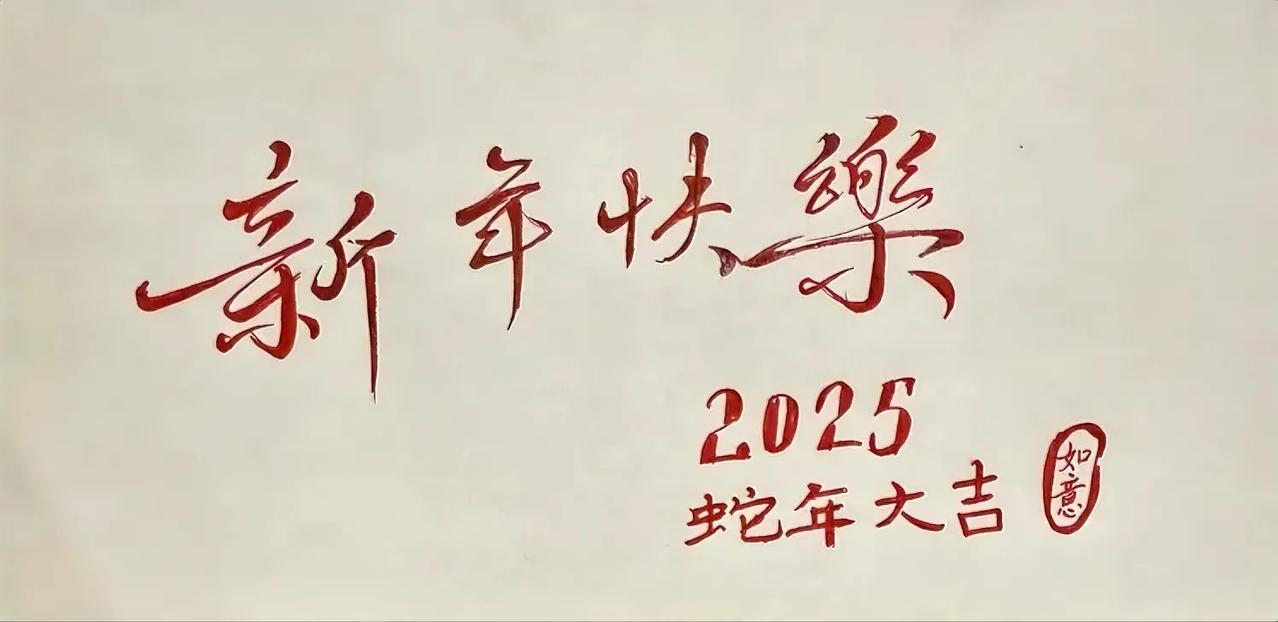 新年快樂
2025
蛇年大吉
如意